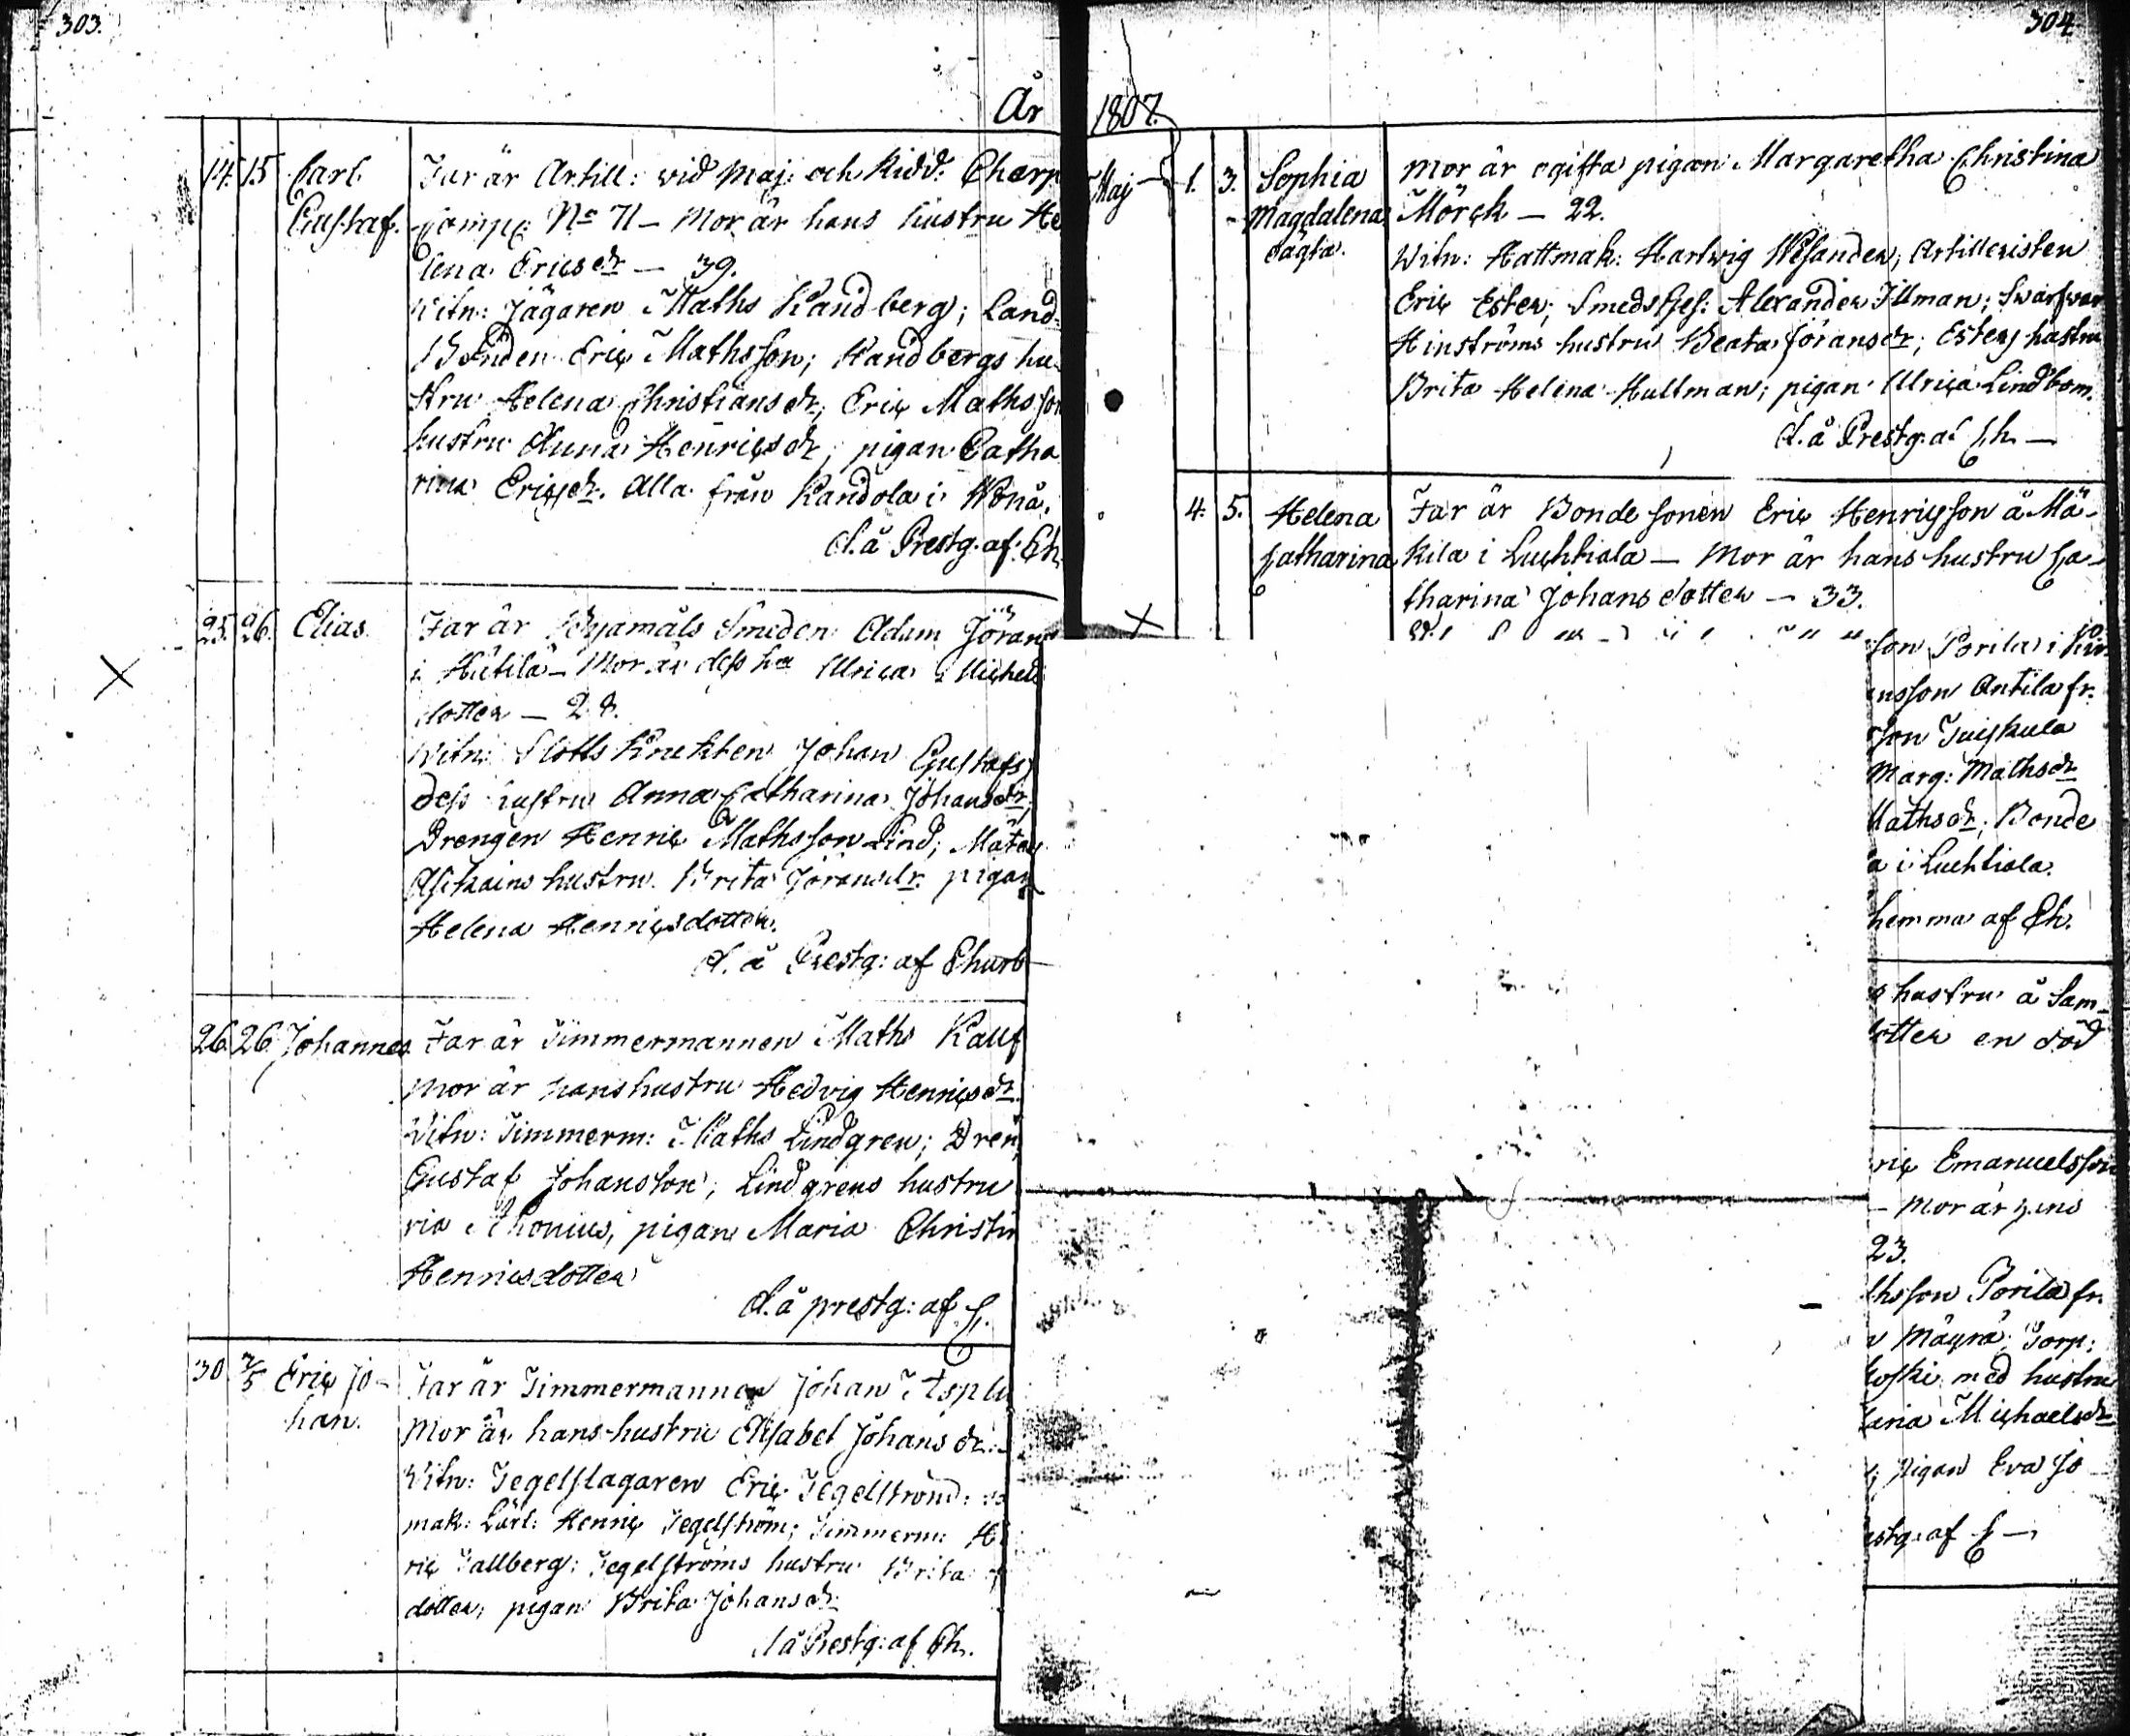 303.
År
14. 15 Carl Far är Artill: vid Maj: och Ridd.
Gustaf. Comp: No 71 – Mor är hans hustru He
lena Ericsdr — 39.
Witn: Jägaren Maths Randberg; Land-
Bonden Eric Mathsson; Randbergs hu-
stru Helena Christiansdr, Eric Mathsson
hustru Anna Henricsdr; pigan Catha
rina Ericsdr. Alla från Kandola i
d. å Prestg. af Ch.
25. 26. Elias. Far är Byamåls Smeden Adam Jöran
i Hütilä – Mor är dess hu Ulrica Michels
dotter — 28.
Witn: Slotts Knekten Johan Gustafs
dess hustru Anna Catharina Johansdr,
Drengen Henric Mathsson Lind;
hustru Brita Jöransdr. pigan
Helena Henricsdotter.
d. å Prestg: af
26. 26. Johannes Far är Timmermannen Maths
Mor är hans hustru Hedvig Henricsdr
Witn: Timmerm: Maths Lindgren; Dren
Gustaf Johansson; Lindgrens hustru
ria pigan Maria Christin
Henricsdotter
d. å prestg: af C.
30 2/5 Eric Jo- Far är Timmermannen Johan Asplu
han. Mor är hans hustru Elisabet Johansdr
Witn: Tegelslagaren Eric Tegelström:
mak: Lärl: Henric Tegelström; Timmerm: H
ric Tallberg: Tegelströms hustru Brita
dotter, pigan Brita Johansdr
d å Prestg: af Ch.
304
1807.
Maj 1. 3. Sophia Mor är ogifta pigan Margaretha Christina
Magdalena Mörck — 22.
oägta. Witn: Hattmak: Hartwig Wesander; Artilleristen
Eric Ester; Smedsges: Alexander Illman; Swarfvar
Hinströms hustru Beata Jöransdr; Esters hustru
Brita Helena Hultman; pigan Ulrica Lindbom.
d. å Prestg. af Ch —
4. 5. Helena Far är Bonde Sonen Eric Henricsson å Mä-
Catharina kila i Luchtiala — Mor är hans hustru Ca-
tharina Johans dotter — 33.
son Porila i
nsson Antila fr.
son Tuiskula
Marg: Mathsdr
Mathsdr; Bonde
a i Luchtiala.
hemma af Ch.
s hustru å Sam-
otter en död
ric Emanuelsson
– Mor är hans
23.
thsson Porila fr.
Mäyrä; Torp:
koski med hustru
aria Michaelsdr
; pigan Eva Jo
estg: af C —